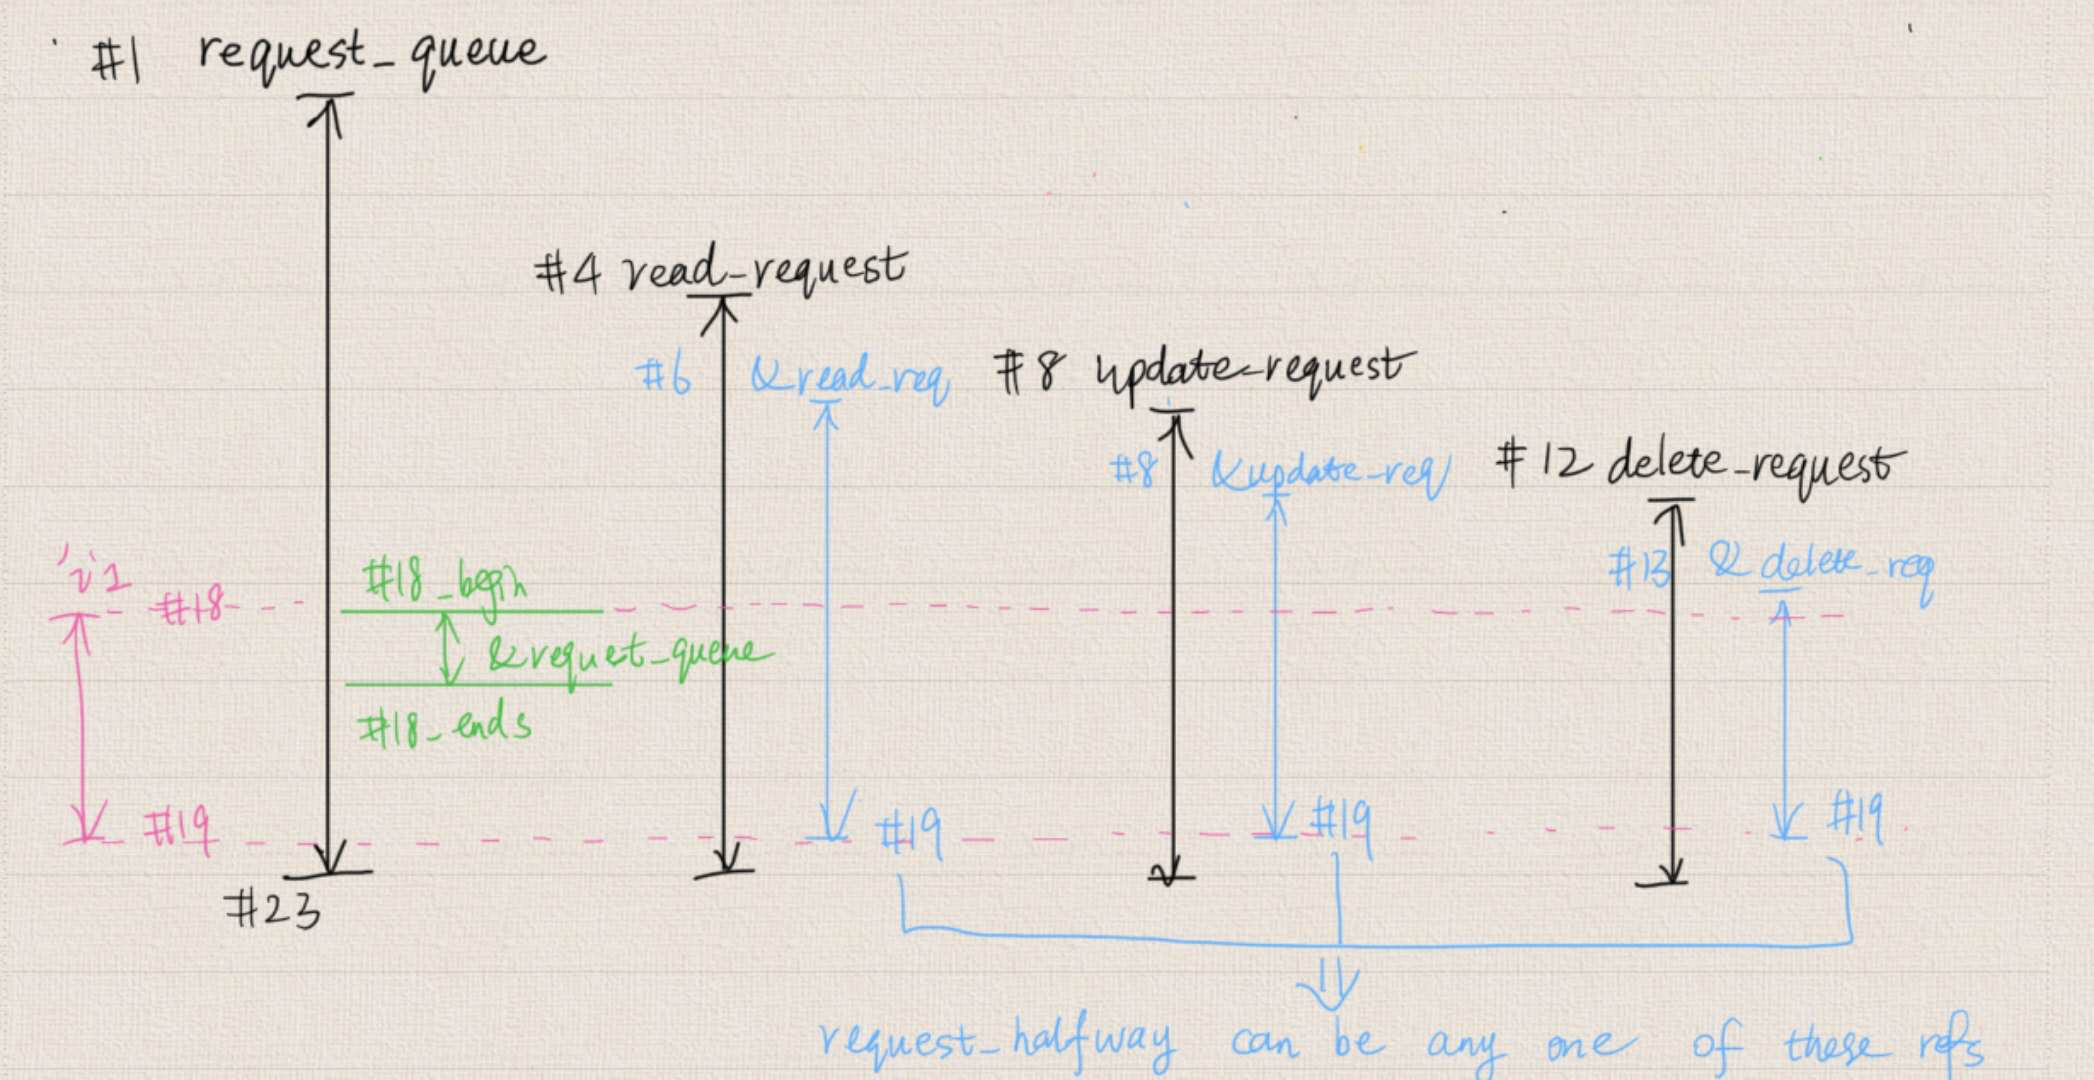 #1 request_queue
#4 read_request
#6 &read_req
#8 update_request
#8 &update_req
#12 delete_request
#13 & delete_req
'i1
#18
#18_begin
&request_queue
#18_ends
#19
#19
#19
#19
#23
request_halfway can be any one of these refs